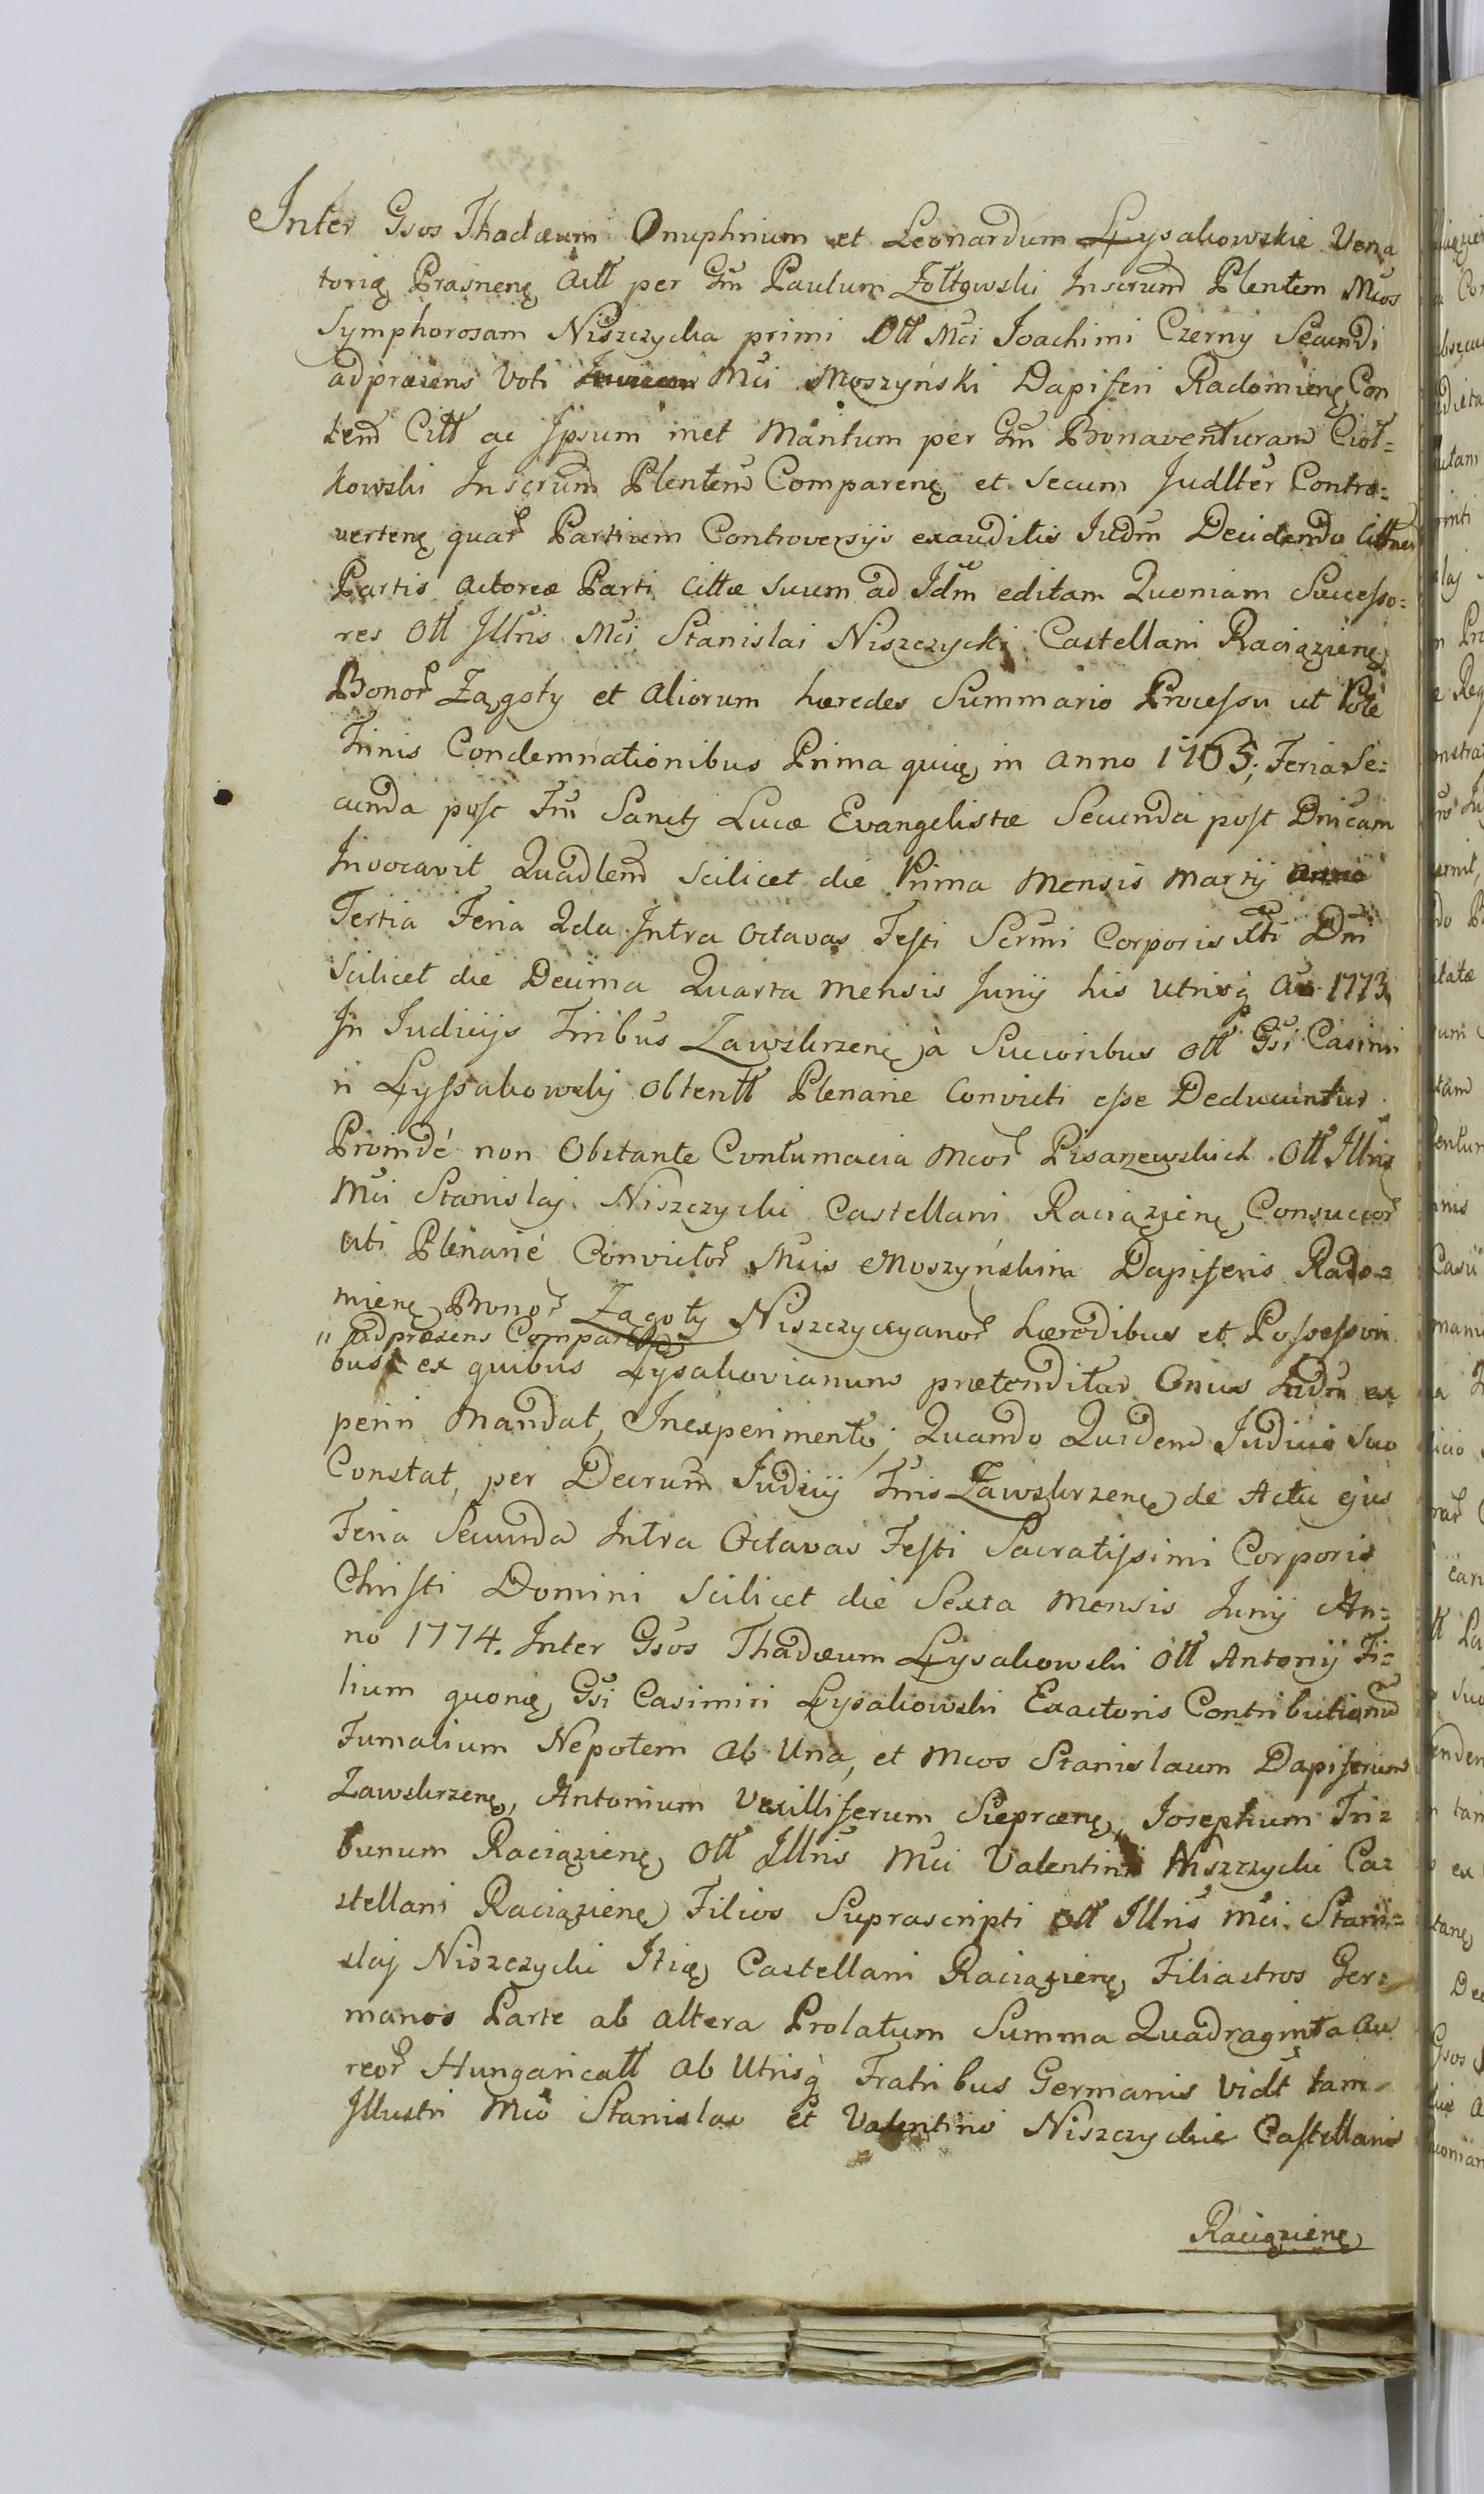 Inter Gsos Thadæum Onuphrium et Leonardum Łysakowskie Vena
torię Prasnenę Actt per Gm Paulum Zołtowski Inscrum Plentem Mcos
Symphorosam Niszczycka primi Ott Mci Joachimi Czerny Secundi
adpræsens Voti Mci Moszyński Dapiferi Radomienę Con
tem Citt ac Ipsum met Maritum per Gm Bonaventuram Cioł=
kowski Inscrum Plentem Comparenę et secum Judlter Contro=
vertenę quar Partium Controversijs exauditis Judm Decidendo Cittnem
Partis Actoreæ Parti Cittæ suum ad Jdm editam Quoniam Successo=
res Ott Jllris Mci Stanislai Niszczycki Castellani Raciązienę
Bonor Zągoty et Aliorum hæredes Summario Processu ut Pote
Trinis Condemnationibus Prima quię in Anno 1765; Feria Se=
cunda post Fm Sancti Lucæ Evangelistæ Secunda post Dnicam
Invocavit Quadlem scilicet die Prima Mensis Martij anno
Tertia Feria 2da Intra Octavas Festi Scrmi Corporis Xti Dni
Scilicet die Decima Quarta Mensis Junij his utrisq Ao 1773
In Judicijs Trribus Zawskrzenę à Succoribus Ott Gsi Casimi
ri Łyssakowskij obtentt Plenarie Convicti esse Deducuntur
Proindé non Obstante Contumacia Mcor Pisarzewskich Ott Jllris
Mci Stanislaj Niszczycki Castellani Raciązienę Consuccor
uti Plenarié Convictor Mcis Moszyńskim Dapiferis Rado=
mienę Bonor Zągoty Niszczycyanor hæredibus et Possessori
" adpræsens Comparenę
bus ex quibus Łysakovianum prætenditur Onus Judm ex
periri Mandat, In experimento; Quando Quidem Judicio Suo
Constat, per Decrum Judicij Trris Zawskrzenę de Actu ejus
Feria Secunda Intra Octavas Festi Sacratissimi Corporis
Christi Domini Scilicet die Sexta Mensis Junij An=
no 1774. Inter Gsos Thadæum Łysakowski Ott Antonij Fi=
lium quonę Gsi Casimiri Łysakowski Exactoris Contributionum
Fumalium Nepotem ab Una, et Mcos Stanislaum Dapiferum
Zawskrzenę, Antonium Vexilliferum Sieprcenę, Josephum Tri=
bunum Raciązienę Ott Jllris Mci Valentini Niszczycki Ca=
stellani Raciązienę Filios Suprascripti Ott Illris Mci Stani=
slaj Niszczycki Itię Castellani Raciązienę Filiastros Ger=
manos Parte ab altera Prolatum Summa Quadraginta Au
reor Hungaricatt ab Utrisq Fratribus Germanis vidt tam
Jllustri Mco Stanislao et Valentino Niszczyckie Castellanis
Raciązienę